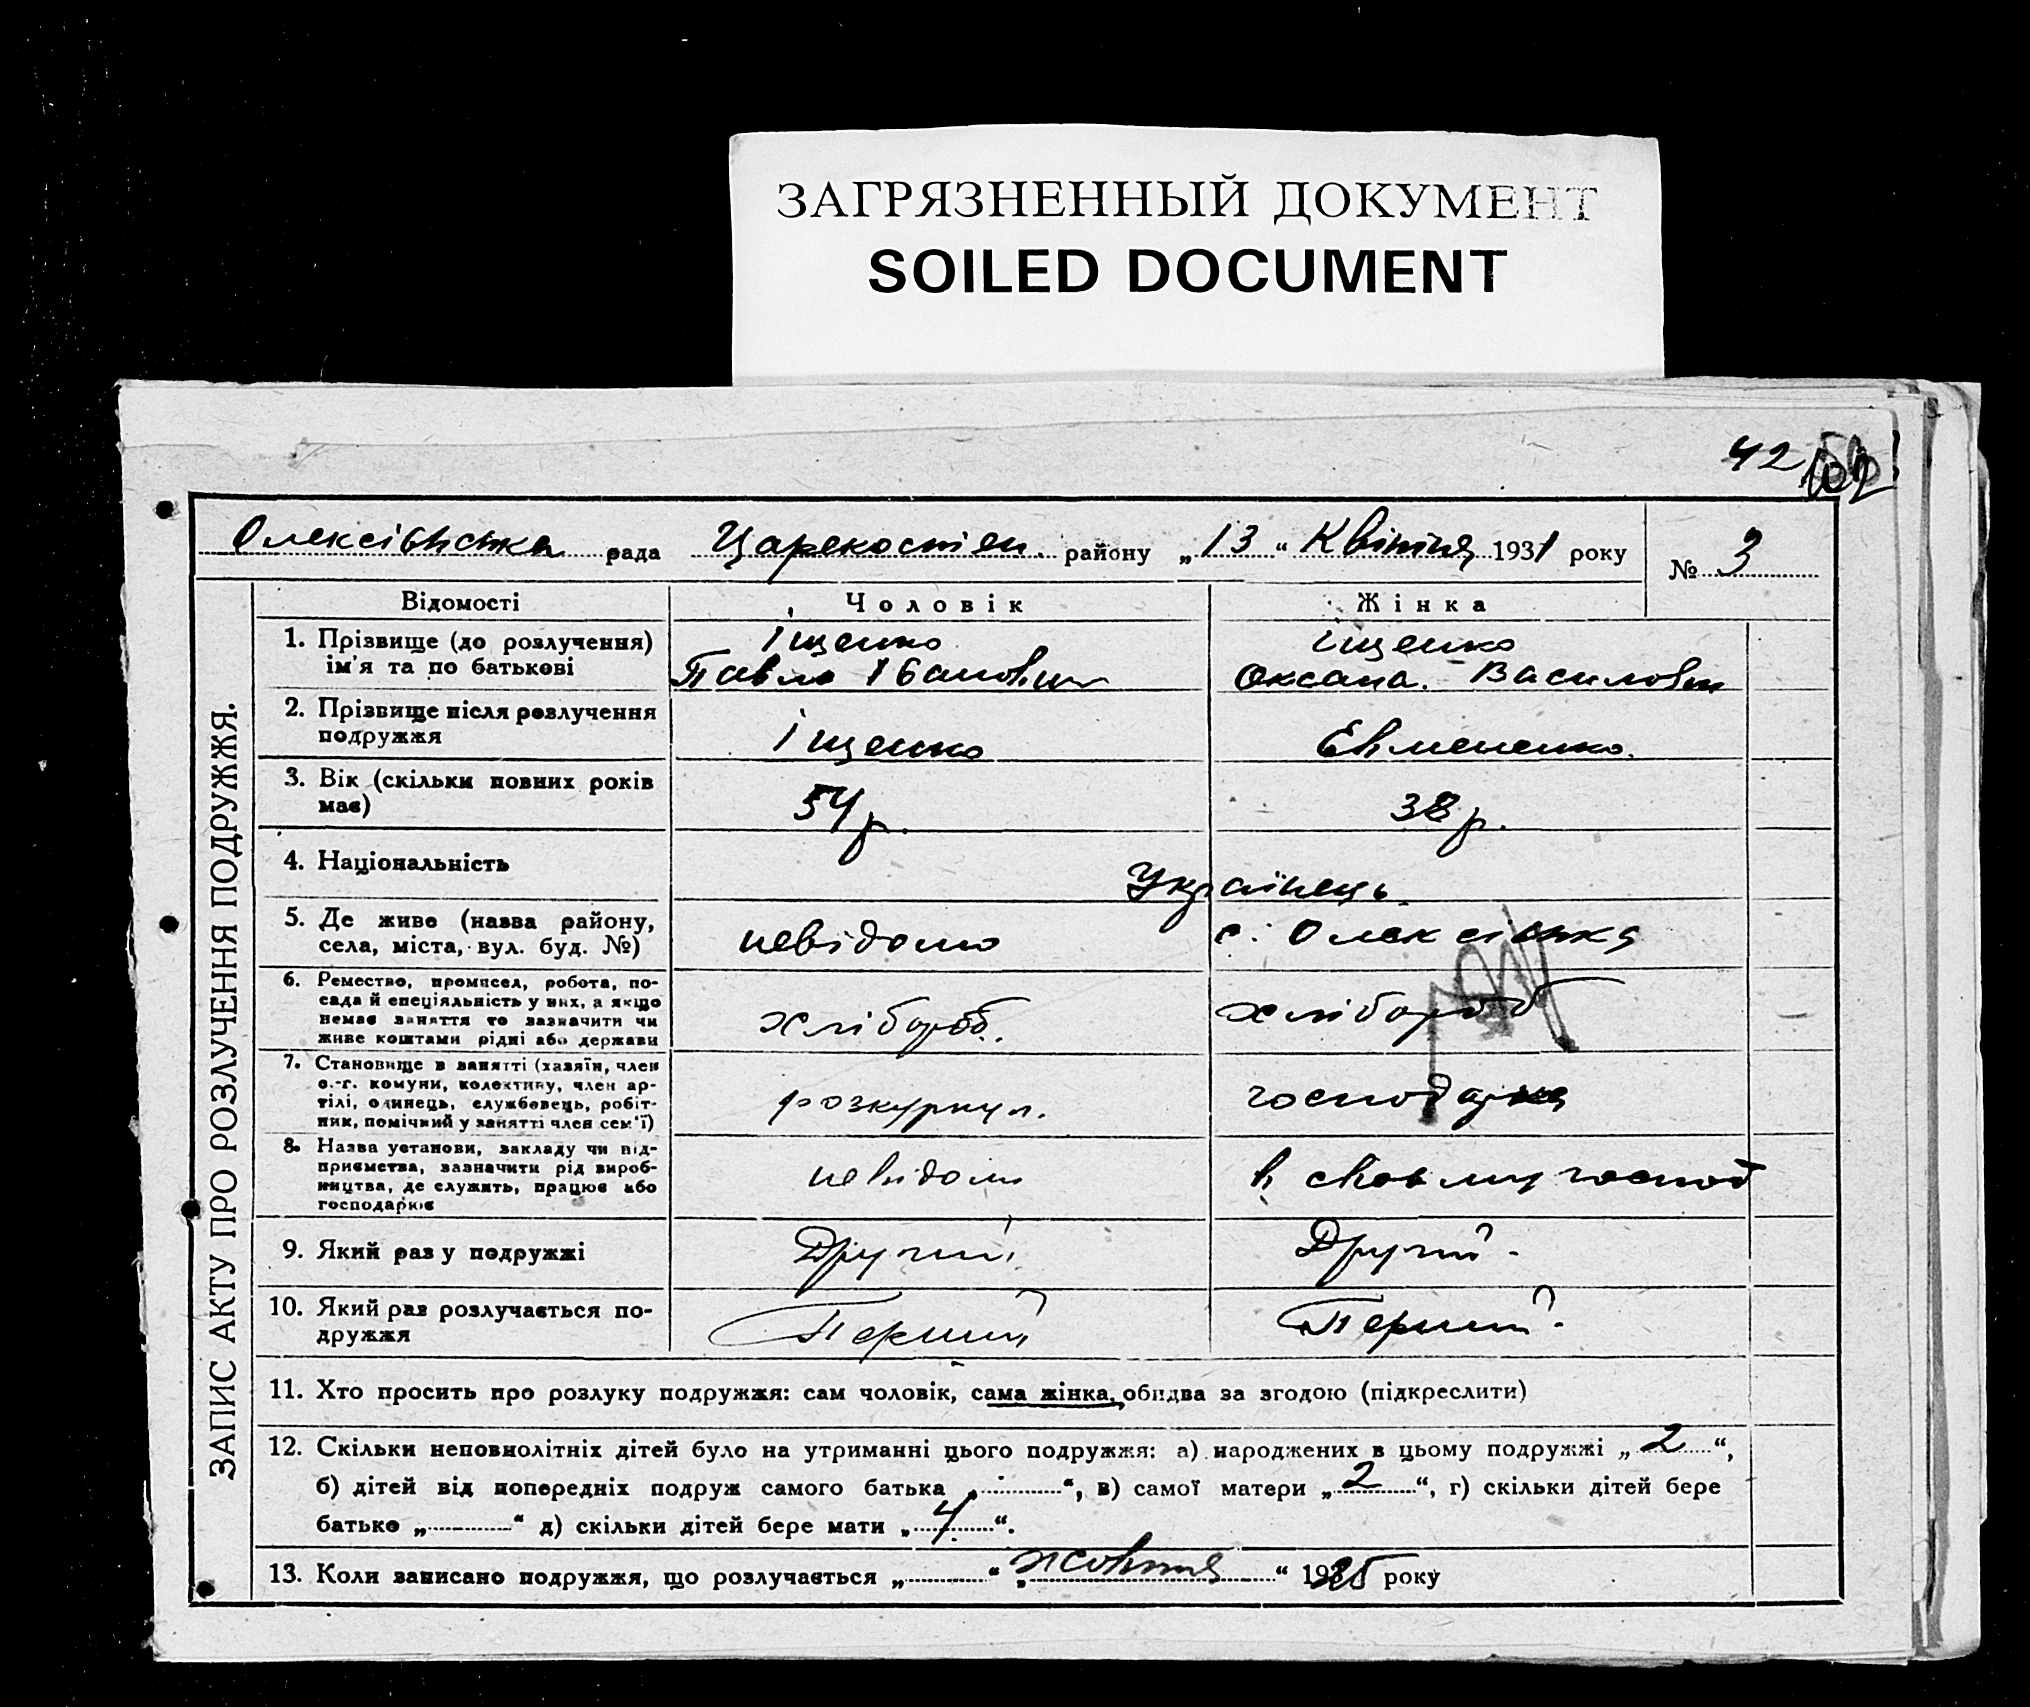 ЗАГРЯЗНЕННЫЙ ДОКУМЕНТ
SOILED DOCUMENT
42
Олексіївська рада Царекостян. району „13“ Квітня 1931 року
№ 3
ЗАПИС АКТУ ПРО РОЗЛУЧЕННЯ ПОДРУЖЖЯ.
Відомості Чоловік Жінка
1. Прізвище (до розлучення) Іщенко Іщенко
ім'я та по батькові Павло Іванович Оксана Василовн
2. Прізвище після розлучення
подружжя Іщенко Евмененко.
3. Вік (скільки повних років
має) 54 р. 38 р.
4. Національність Українець.
5. Де живе (назва району,
села, міста, вул. буд. №) невідомо с. Олексіївка
6. Ремество, промисел, робота, по-
сада й спеціяльність у них, а якщо
немає заняття то зазначити чи
живе коштами рідні або держави хлібороб. хлібороб
7. Становище в занятті (хазяїн, член
с.-г. комуни, колективу, член ар-
тілі, одинець, службовець, робіт-
ник, помічний у занятті член сем'ї) розкуркул. господарка
8. Назва установи, закладу чи під-
приємства, зазначити рід вироб-
ництва, де служить, працює або
господарює невідомо в своєму господ
9. Який раз у подружжі Другий Другий.
10. Який раз розлучається по-
дружжя Перший Перший.
11. Хто просить про розлуку подружжя: сам чоловік, сама жінка, обидва за згодою (підкреслити)
12. Скільки неповнолітніх дітей було на утриманні цього подружжя: а) народжених в цьому подружжі „2“,
б) дітей від попередніх подруж самого батька „......“, в) самої матери „2“, г) скільки дітей бере
батько „......“ д) скільки дітей бере мати „4“.
13. Коли записано подружжя, що розлучається „......“ „жовтня“ 1925 року